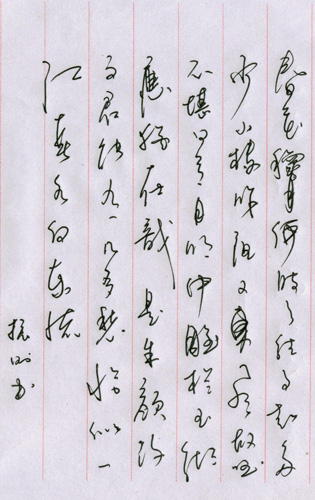 春花秋月何时了往事知多
少小楼昨夜又东风故国
不堪回首月明中雕栏玉砌
应犹在是朱颜改
问君能有几多愁恰似一
江春水向东流
书